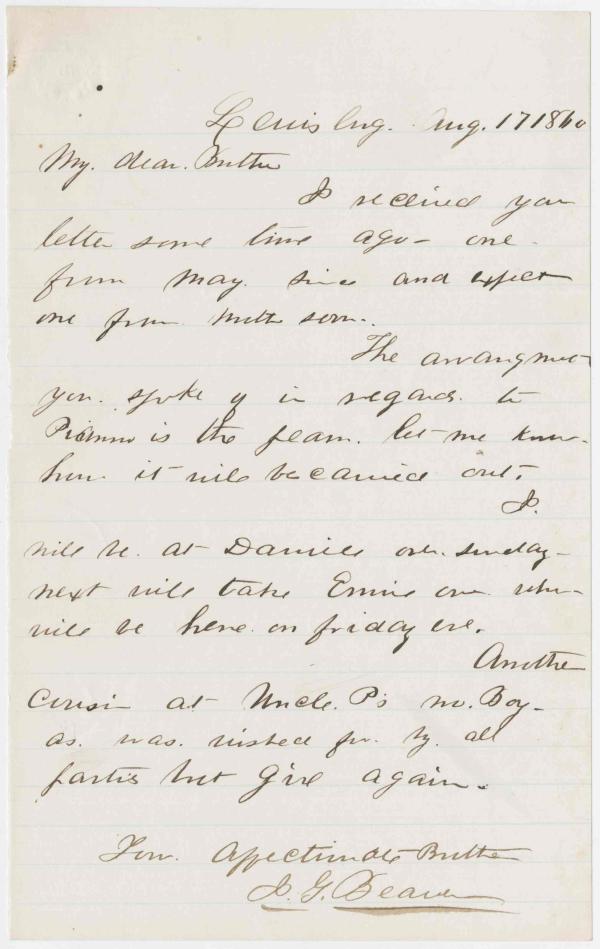 Lewisburg. Aug. 17 1860
My. dear. Brother
I received your
letter some time ago - one
from May. since and expect
one from Mother soon.
The arrangment
you. spoke of in regard. to
Pianno is the plan. let me know
how it will be carried out.
I.
will be. at Daniels over. sunday -
next will take Emmie over who
will be here. on friday eve.
Another
Cousin at Uncle. P's no. Boy -
as. was. wished for. by. all
parties but Girl again.
Your. Affectionate Brother
J. G. Beaver